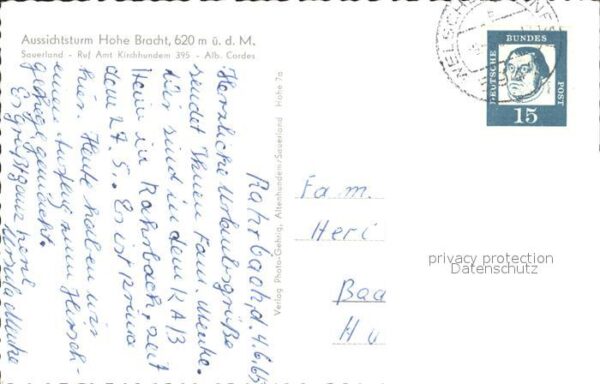 Aussichtsturm Hohe Bracht, 620 m ü. d. M.
Sauerland - Ruf Amt Kirchhundem 395 - Alb. Cordes
Rahrbach, d. 4.6.65
Herzliche Urlaubsgrüße
sendet Ihnen Fam. Menke.
Wir sind in dem KAB
Heim in Rahrbach, seit
dem 27. 5.. Es ist prima
hier. Heute haben wir
einen Ausflug zum Hirsch-
gemacht.
Es grüßt ganz herzl.
Menke
Verlag Photo-Gehrig, Altenhundem/Sauerland Hohe 7a
DEUTSCHE
BUNDES
POST
15
Fam.
Heri
Baa
Hu
privacy protection
Datenschutz